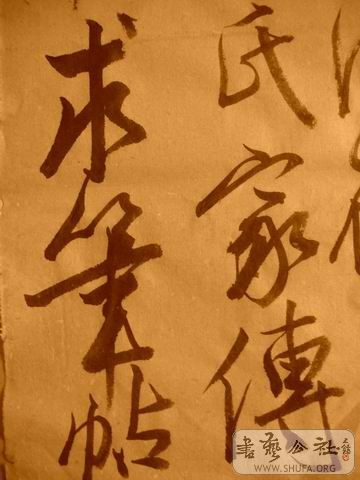 氏家傳
求筆帖
書藝公社
WWW.SHUFA.ORG